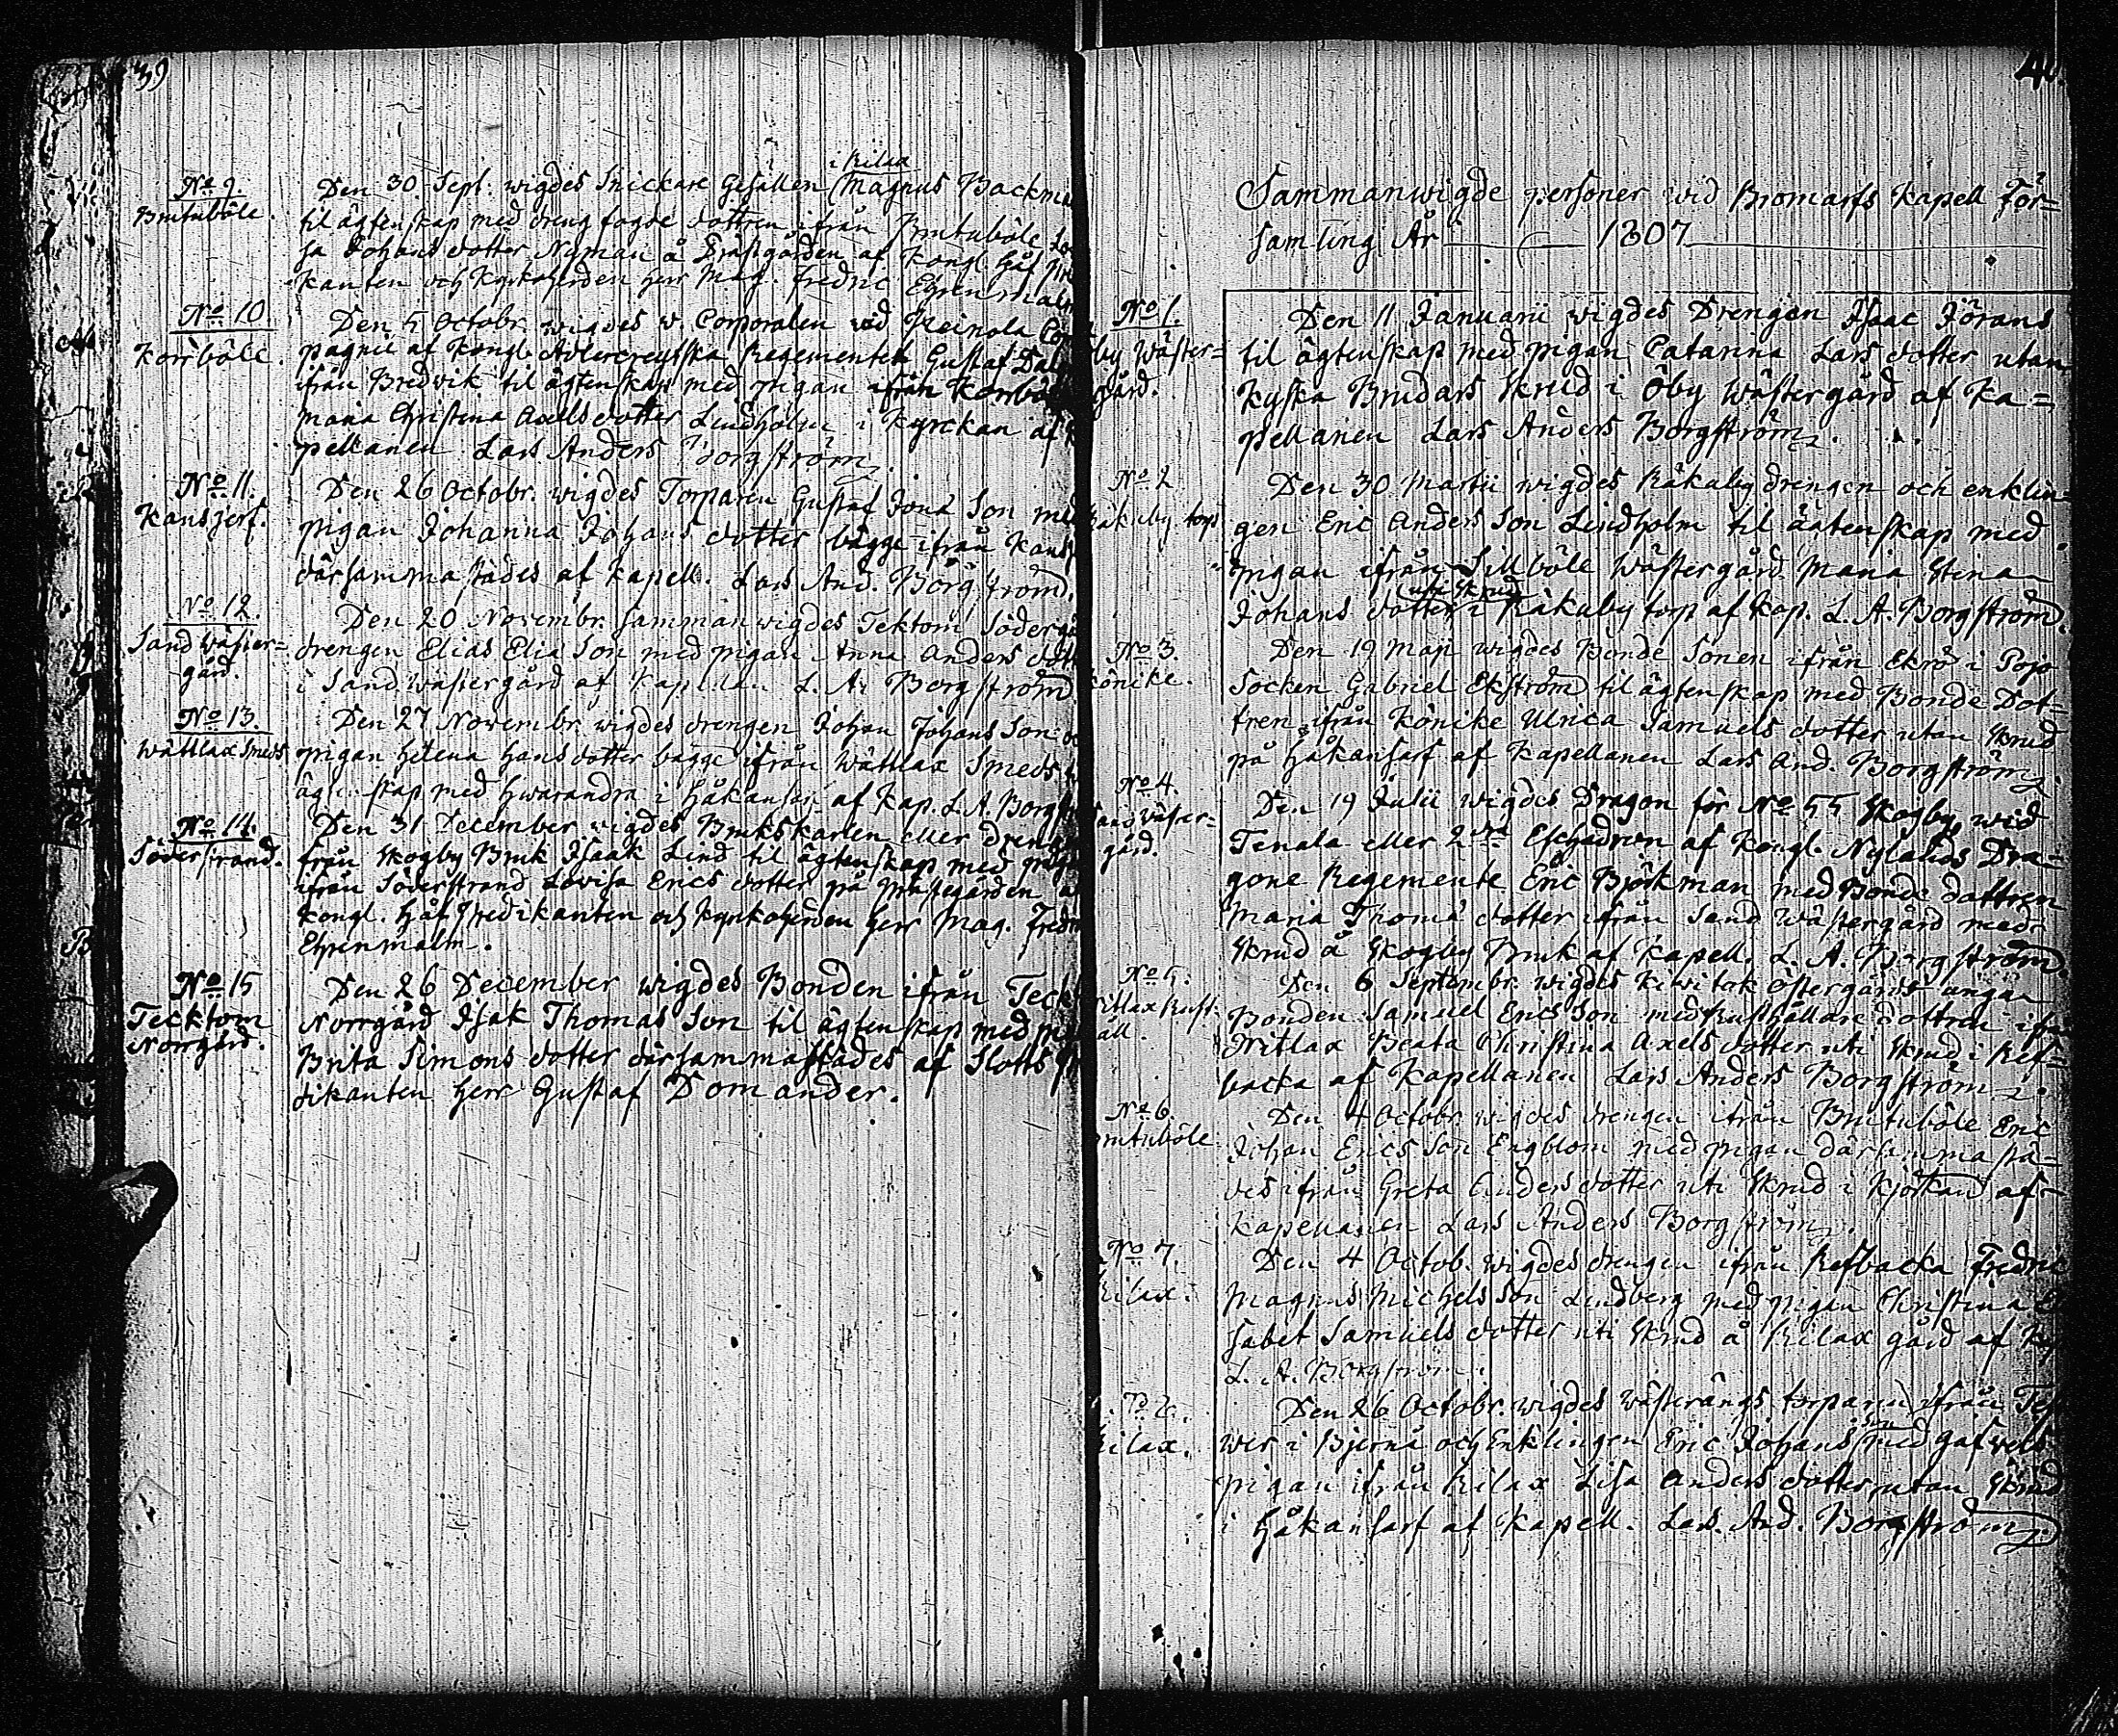 39
No 9.
Brutuböle.
i Rilax
Den 30 Sept. wigdes Snickare Gesällen Magnus Backma
til ägtenskap med dreng fogde dottren ifrån Brutuböle Lo
sa Johans dotter Nyman å Prästgården af Kongl. Håf Pre
kanten och Kyrkoherden Herr Mag. Fredric Ehrenmalm
No 10.
Korrböle.
Den 5 Octobr. wigdes v. Corporalen vid Heinola Com
pagnie af Kongl. Adlercreutzska Regementet Gustaf Dal
ifrån Bredvik til ägtenskap med pigan ifrån Korrböle
Maria Christina Axelsdotter Lindholm i Kyrckan af K
pellanen Lars Anders Borgström.
No 11.
Kansjerf.
Den 26 Octobr. wigdes Torparen Gustaf Jona Son med
pigan Johanna Johans dotter bägge ifrån Kans
därsammastädes af Kapell. Lars And. Borgström.
No 12.
Sand Wäster=
gård.
Den 20 Novembr. sammanwigdes Tektom Södergå
drengen Elias Elia Son med pigan Anna Anders dott
i Sand Wästergård af Kapellan L. A. Borgström
No 13.
Wättlax Smeds
Den 27 Novembr. wigdes drengen Johan Johans Son oc
pigan Helena Hans dotter bägge ifrån Wättlax Smeds
ägtenskap med hwarandra i Håkansarf af Kap. L. A. Borgst
No 14.
Söderstrand.
Den 31 December wigdes Brukskarlen eller dreng
från Skogby Bruk Isaak Lind til ägtenskap med pig
ifrån Söderstrand Lovisa Erics dotter på Prästegården a
Kongl. Håf Predikanten och Kyrkoherden Herr Mag. Fredr
Ehrenmalm.
No 15
Tecktom
Norrgård.
Den 26 December wigdes Bonden ifrån Teckt
Norrgård Isak Thomas Son til ägtenskap med pi
Brita Simons dotter därsammastädes af Slotts Pr
dikanten Herr Gustaf Domander.
40
Sammanwigde personer vid Bromarfs Kapell För=
samling År 1807
No 1.
by Wäster=
gård.
Den 11 Januarii wigdes Drengen Isaac Jörans
til ägtenskap med pigan Catarina Lars dotter utan
kyska Brudars Skrud i Öby Wästergård af Ka=
pellanen Lars Anders Borgström.
No 2
Råkuby torp
Den 30 Martii wigdes Råkuby drengen och enklin=
gen Eric Anders Son Lindholm til ägtenskap med
pigan ifrån Sillböle Wästergård Maria Stina
uti Skrud
Johans dotter i Råkuby torp af Kap. L. A. Borgström.
No 3.
Könike.
Den 19 Maji wigdes Bonde Sonen ifrån Ekrö i Pojo
Socken Gabriel Ekström til ägtenskap med Bonde Dot=
tren ifrån Könike Ulrica Samuels dotter utan Skrud
på Håkansarf af Kapellanen Lars And. Borgström.
No 4.
and Wäster=
gård.
Den 19 Julii wigdes Dragon för No 55 Skogby wid
Tenala eller 2dra Esqvadron af Kongl. Nylands Dra=
gone Regemente Eric Björkman med Bonde dottren
Maria Thoma dotter ifrån Sand Wästergård med
Skrud å Skogby Bruk af Kapell. L. A. Borgström.
No 5.
ritlax Rust-
all.
Den 6 Septembr. wigdes Kiwitok Östergårds unga
Bonden Samuel Erics Son med Rusthållare dottren ifrån
Nritlax Beata Christina Axels dotter uti Skrud i Ref=
backa af Kapellanen Lars Anders Borgström.
No 6.
rutuböle
Den 4 Octobr. wigdes drengen ifrån Brutuböle Eric
Johan Erics Son Engblom med pigan därsammastä=
des ifrån Greta Anders dotter uti Skrud i Kyrkan af
Kapellanen Lars Anders Borgström.
No 7.
Rilax.
Den 4 Octob. wigdes drengen ifrån Refbacka Fredric
Magnus Michels Son Lindberg med pigan Christina E
sabet Samuels dotter uti Skrud å Rilax gård af Kap
L. A. Borgström.
No 8.
Rilax.
Den 26 Octobr. wigdes Wästerängs torparen ifrån
wer i Bjernå och Enklingen Eric Johans son med
pigan ifrån Rilax Lisa Anders dotter utan Skrud
i Håkansarf af Kapell. Lars. And. Borgström.